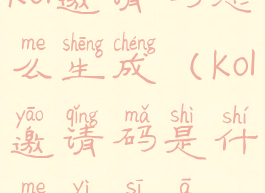 me shēng chéng
么生成（Kol
yāo qǐng mǎ shì shí
邀请码是什
me yì sī ā